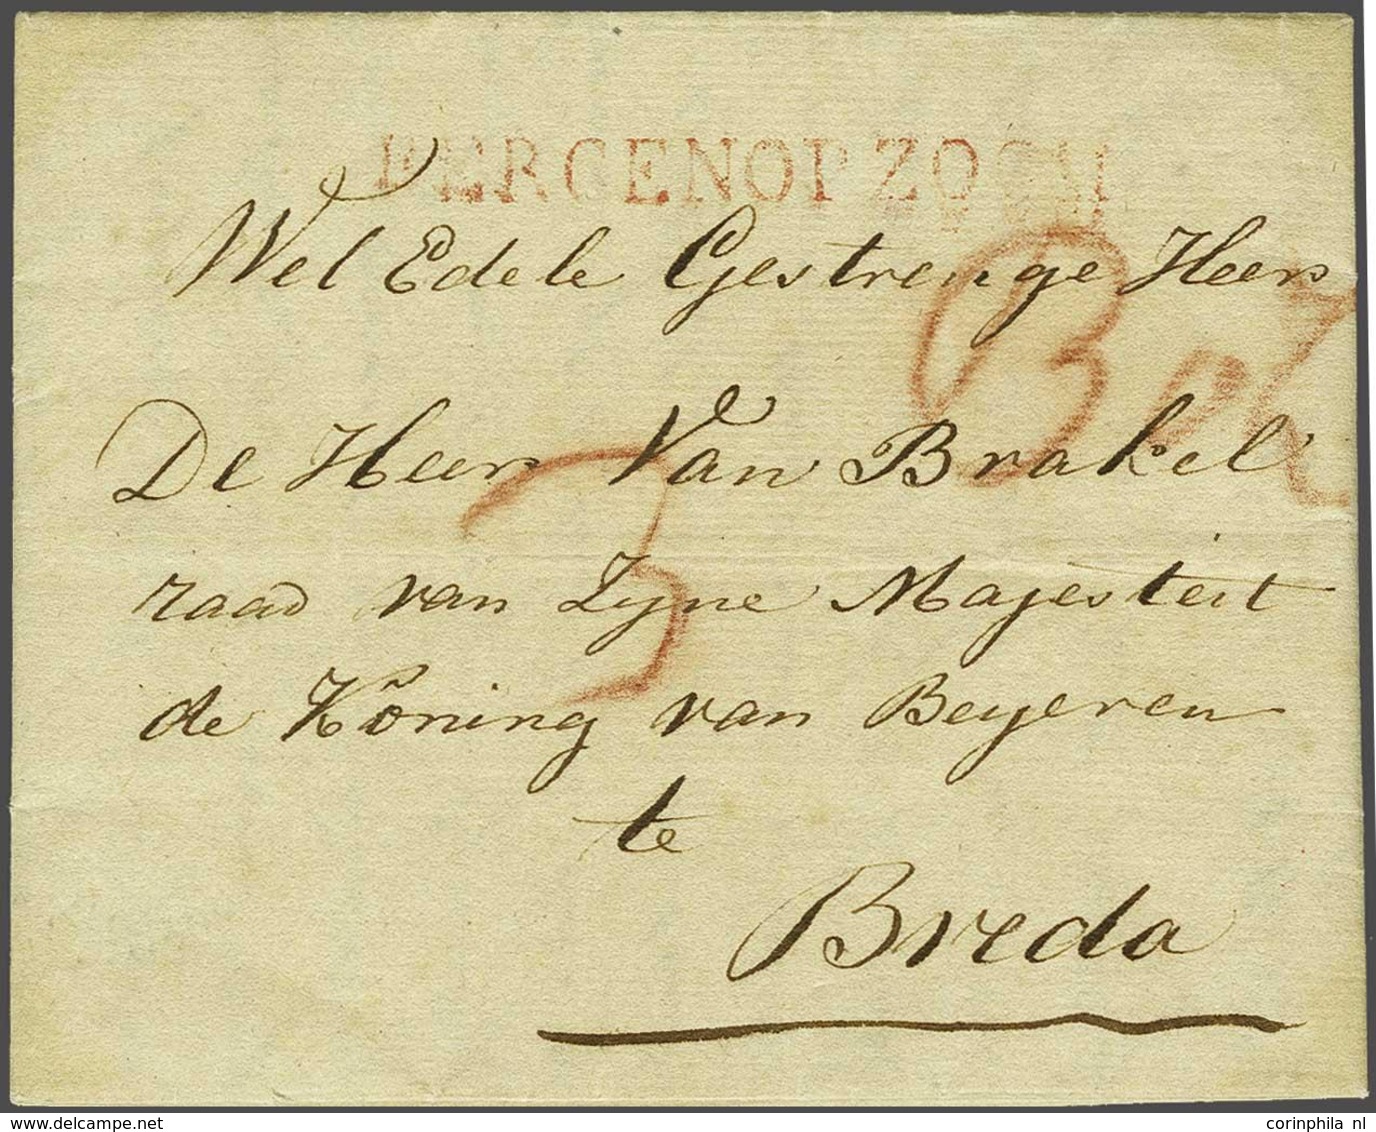 BERGENOPZOOM
Wel Edele Gestrenge Heer
De Heer Van Brakel
raad van Zyne Majesteit
de Koning van Beyeren
te
Breda
3
corinphila nl